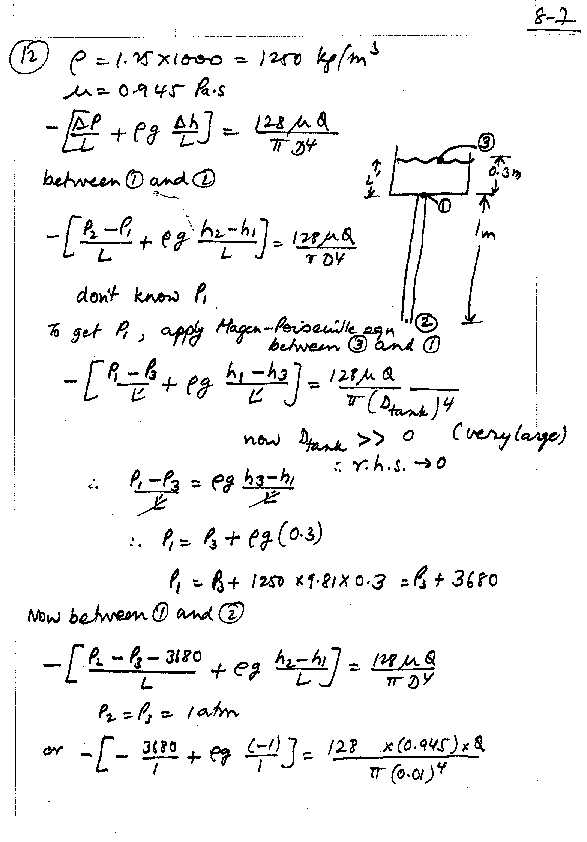 8-7
⑫ ρ = 1.25×1000 = 1250 kg/m³
μ = 0.945 Pa.s
-[ΔP/L + ρg Δh/L] = 128 μQ / π D⁴
between ① and ②
-[(P₂-P₁)/L + ρg (h₂-h₁)/L] = 128μQ / π D⁴
③
0.3m
L'
①
1m
②
don't know P₁
To get P₁, apply Hagen-Poiseuille eqn
between ③ and ①
-[(P₁-P₃)/L' + ρg (h₁-h₃)/L'] = 128μQ / π(D_tank)⁴
now D_tank >> 0 (very large)
∴ r.h.s. → 0
∴ (P₁-P₃)/L' = ρg (h₃-h₁)/L'
∴ P₁ = P₃ + ρg (0.3)
P₁ = P₃ + 1250 × 9.81 × 0.3 = P₃ + 3680
Now between ① and ②
-[(P₂-P₃-3680)/L + ρg (h₂-h₁)/L] = 128 μQ / π D⁴
P₂ = P₃ = 1 atm
or -[-3680/1 + ρg (-1)/1] = 128 × (0.945) × Q / π (0.01)⁴